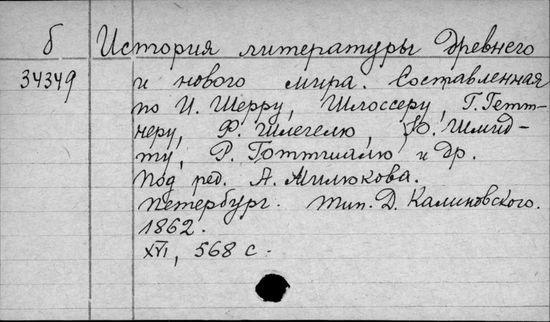 б История литературы древнего
34349 и нового мира. Составленная
по И. Шерру, Шлоссеру, Г. Гетт-
неру, Ф. Шлегелю, Ю. Шмид-
ту, Р. Готтшалю и др.
Под ред. А. Милюкова.
Петербург. Тип. Д. Калиновского.
1862.
XVI, 568 с.